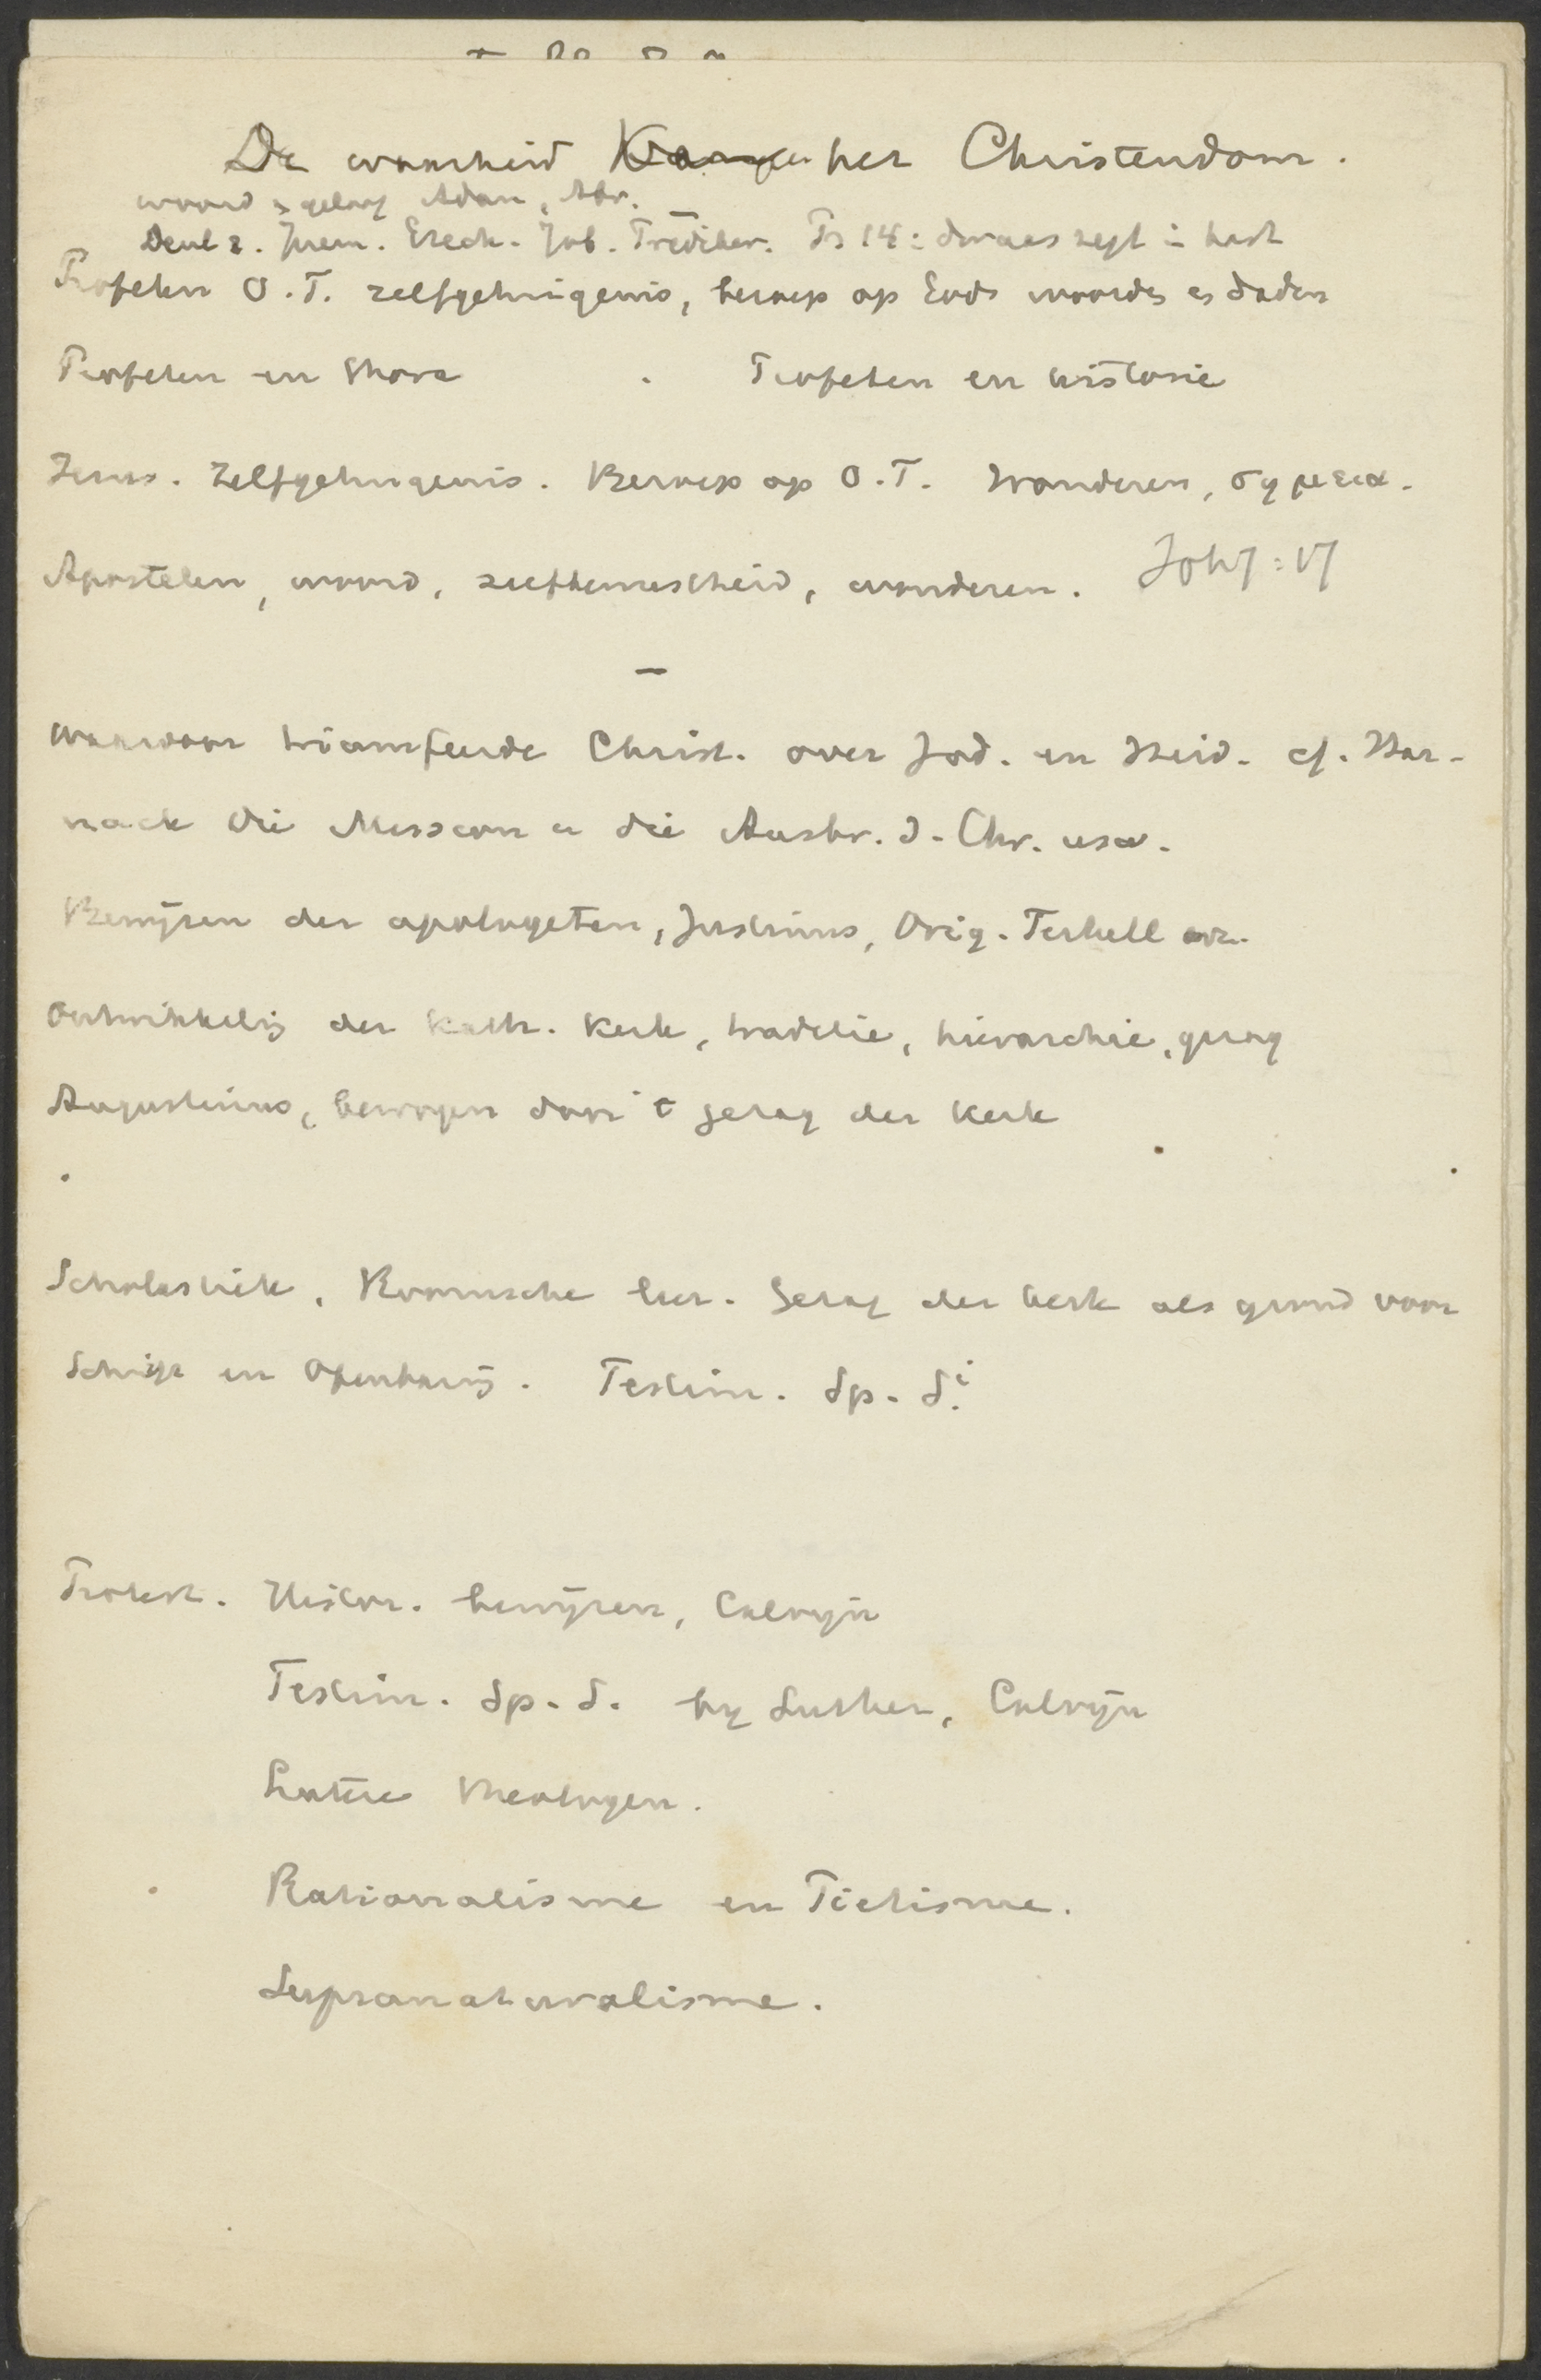 De waarheid van het Christendom.
woord is geloof Adam, Abr.
Deut 2. Jerem. Ezech. Job. Prediker. Ps 14: dwaas zegt in hart
Profeten O.T. zelfgetuigenis, beroep op Gods woorden en daden
Profeten en thora . Profeten en historie
Jezus. Zelfgetuigenis. Beroep op O.T. Wonderen, σημεια.
Apostelen, woord, wonderen. Joh 7:17
—
waardoor triumfeerde Christ. over Jod. en Heid. cf. Har-
nack Die Mission u die Ausbr. d. Chr. usw.
Bewijzen der apologeten, Justinus, Orig. Tertull enz.
Ontwikkeling der Kath. Kerk, traditie, hierarchie, gezag
Augustinus, bewogen door 't gezag der Kerk
Scholastiek. Roomsche leer. Gezag der kerk als grond voor
Schrift en Openbaring. Testim. Sp. Si.
Protest. Histor. bewijzen, Calvijn
Testim. Sp. S. bij Luther, Calvijn
Latere theologen.
Rationalisme en Pietisme.
Supranaturalisme.